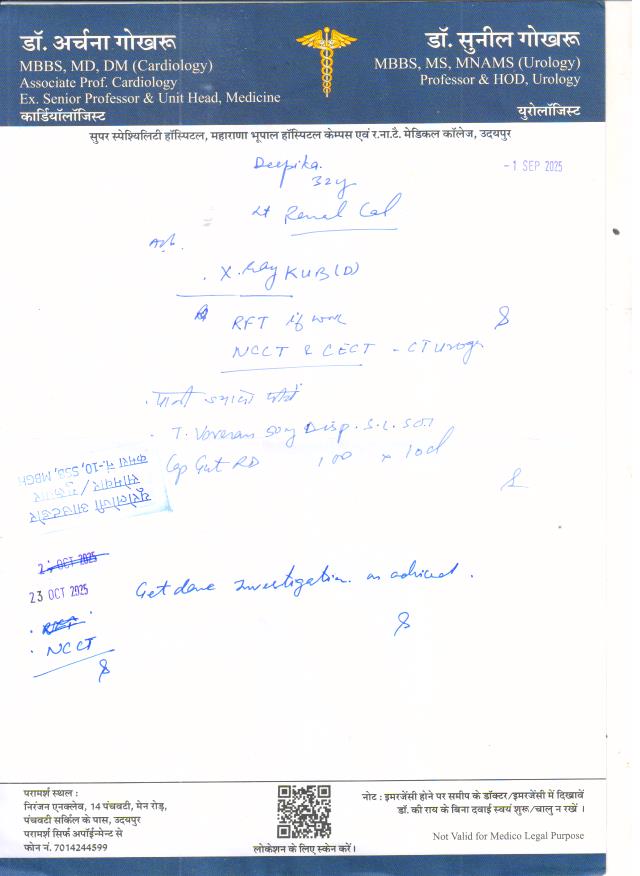 डॉ. अर्चना गोखरू
MBBS, MD, DM (Cardiology)
Associate Prof. Cardiology
Ex. Senior Professor & Unit Head, Medicine
कार्डियॉलॉजिस्ट
डॉ. सुनील गोखरू
MBBS, MS, MNAMS (Urology)
Professor & HOD, Urology
युरोलॉजिस्ट
सुपर स्पेश्यिलिटी हॉस्पिटल, महाराणा भूपाल हॉस्पिटल केम्पस एवं र.ना.टै. मेडिकल कॉलेज, उदयपुर
Deepika.
- 1 SEP 2025
32y
Lt Renal Cal
Adv.
. X. Ray KUB (D)
RFT if
NCCT & CECT - CT
. पानी ज्यादा पीवें
. T. Voveran 50mg Disp. S.L. SOS
Cap Gut RD 1 00 x 10d
यूरोलॉजी आउटडोर
सोमवार /
कमरा नं.-10, SSB, MBGH
2 OCT 2025
23 OCT 2025
Get done investigation as advised.
. RFT
. NCCT
परामर्श स्थल :
निरंजन एनक्लेव, 14 पंचवटी, मेन रोड़,
पंचवटी सर्किल के पास, उदयपुर
परामर्श सिर्फ अपॉईन्मेन्ट से
फोन नं. 7014244599
लोकेशन के लिए स्केन करें।
नोट : इमरजेंसी होने पर समीप के डॉक्टर/इमरजेंसी में दिखावें
डॉ. की राय के बिना दवाई स्वयं शुरू/चालु न रखें ।
Not Valid for Medico Legal Purpose